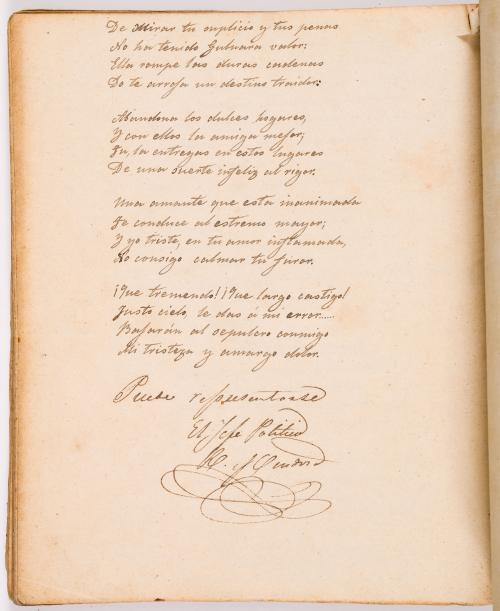 De mirar tu suplicio y tus penas
No ha tenido Gulnara valor:
Ella rompe las duras cadenas
Do te arroja un destino traidor:
Abandona los dulces hogares,
Y con ellos la amiga mejor;
Tu, la entregas en estos lugares
De una suerte infeliz al rigor.
Una amante que esta inanimada
Te conduce al estremo mayor;
Y yo triste, en tu amor inflamada,
No consigo calmar tu furor.
¡Que tremendo! ¡Que largo castigo!
Justo cielo, le das á mi error.....
Bajarán al sepulcro conmigo
Mi tristeza y amargo dolor.
Puede representarse
El Jefe Politico